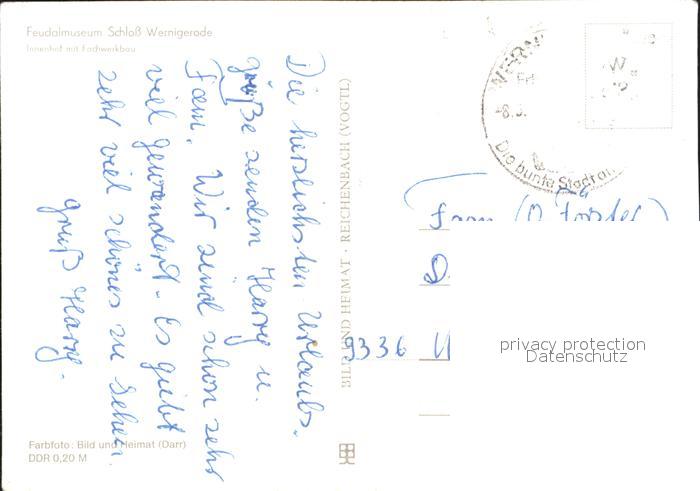 Feudalmuseum Schloß Wernigerode
Innenhof mit Fachwerkbau
Die herzlichsten Urlaubs-
grüße senden Harry u.
Fam. Wir sind schon sehr
viel gewandert. Es giebt
sehr viel schönes zu sehen.
gruß Harry.
Farbfoto: Bild und Heimat (Darr)
DDR 0,20 M
BILD UND HEIMAT · REICHENBACH (VOGTL)
WERN
-8.
Die bunte Stadt am
Fam
9336
privacy protection
Datenschutz